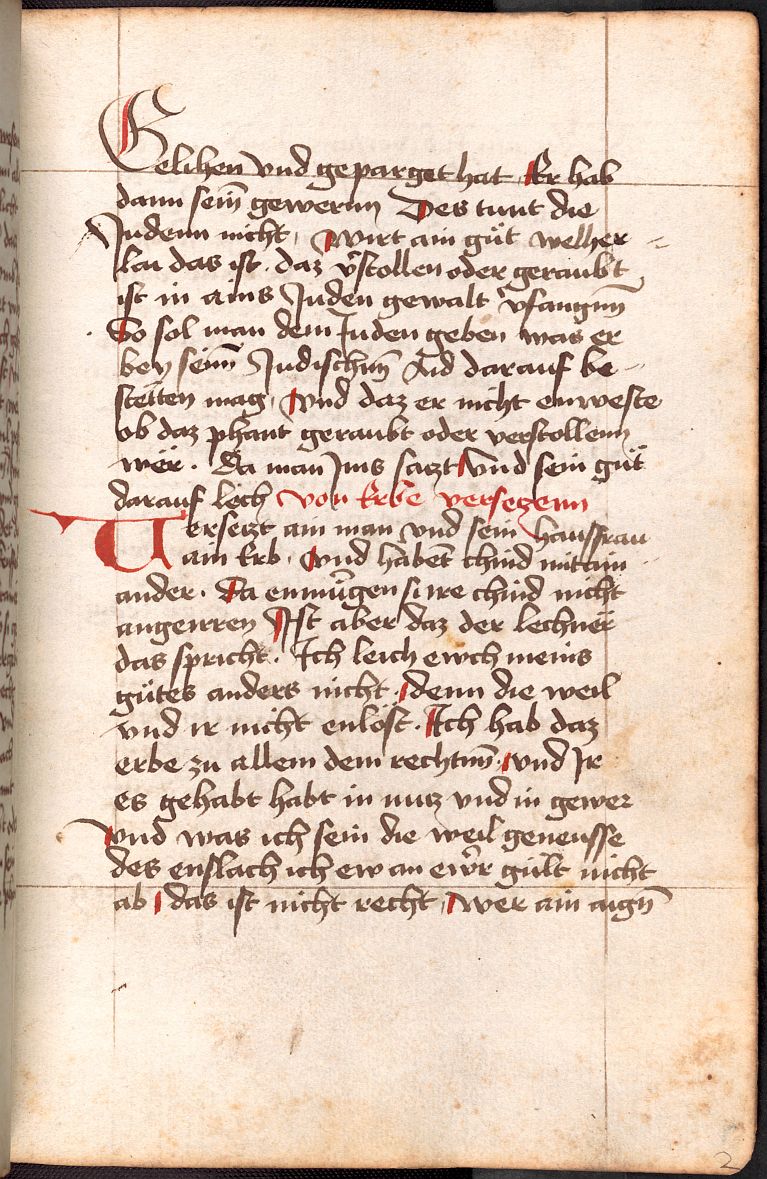 Gelihen vnd geparget hat Er hab
dann sein̄ gewernn Des tunt die
Judenn nicht, wirt ain gůt welher-
lai das ist. daz v̓stollen oder geraubt
ist in ains Juden gewalt v̓fangnn̄
So sol man dem Juden geben was er
bey seinn̄ Judischnn̄ Aid darauf be-
stetten mag, vnd daz er nicht enweste
ob daz phant geraubt oder verstollenn
wër. da man Jms saczt vnd sein gůt
darauf lech von Erbe versetzenn
Versetzt ain man vnd sein hausfrau
ain Erb, vnd habent̄ chind mitain
ander. Da enmu̓gen si ire chind nicht
angeirren Ist aber daz der lechnër
das spricht. Ich leich ewch meins
gůtes anders nicht, denn die weil
vnd ir nicht enlöst. Ich hab daz
erbe zu allem dem rechtnn̄, vnd Jr
es gehabt habt in nutz vnd in gewer
vnd was ich sein die weil geneusse
des enslach ich ew an ewr̓ gült nicht
ab, das ist nicht recht, wer ain aign̄
2